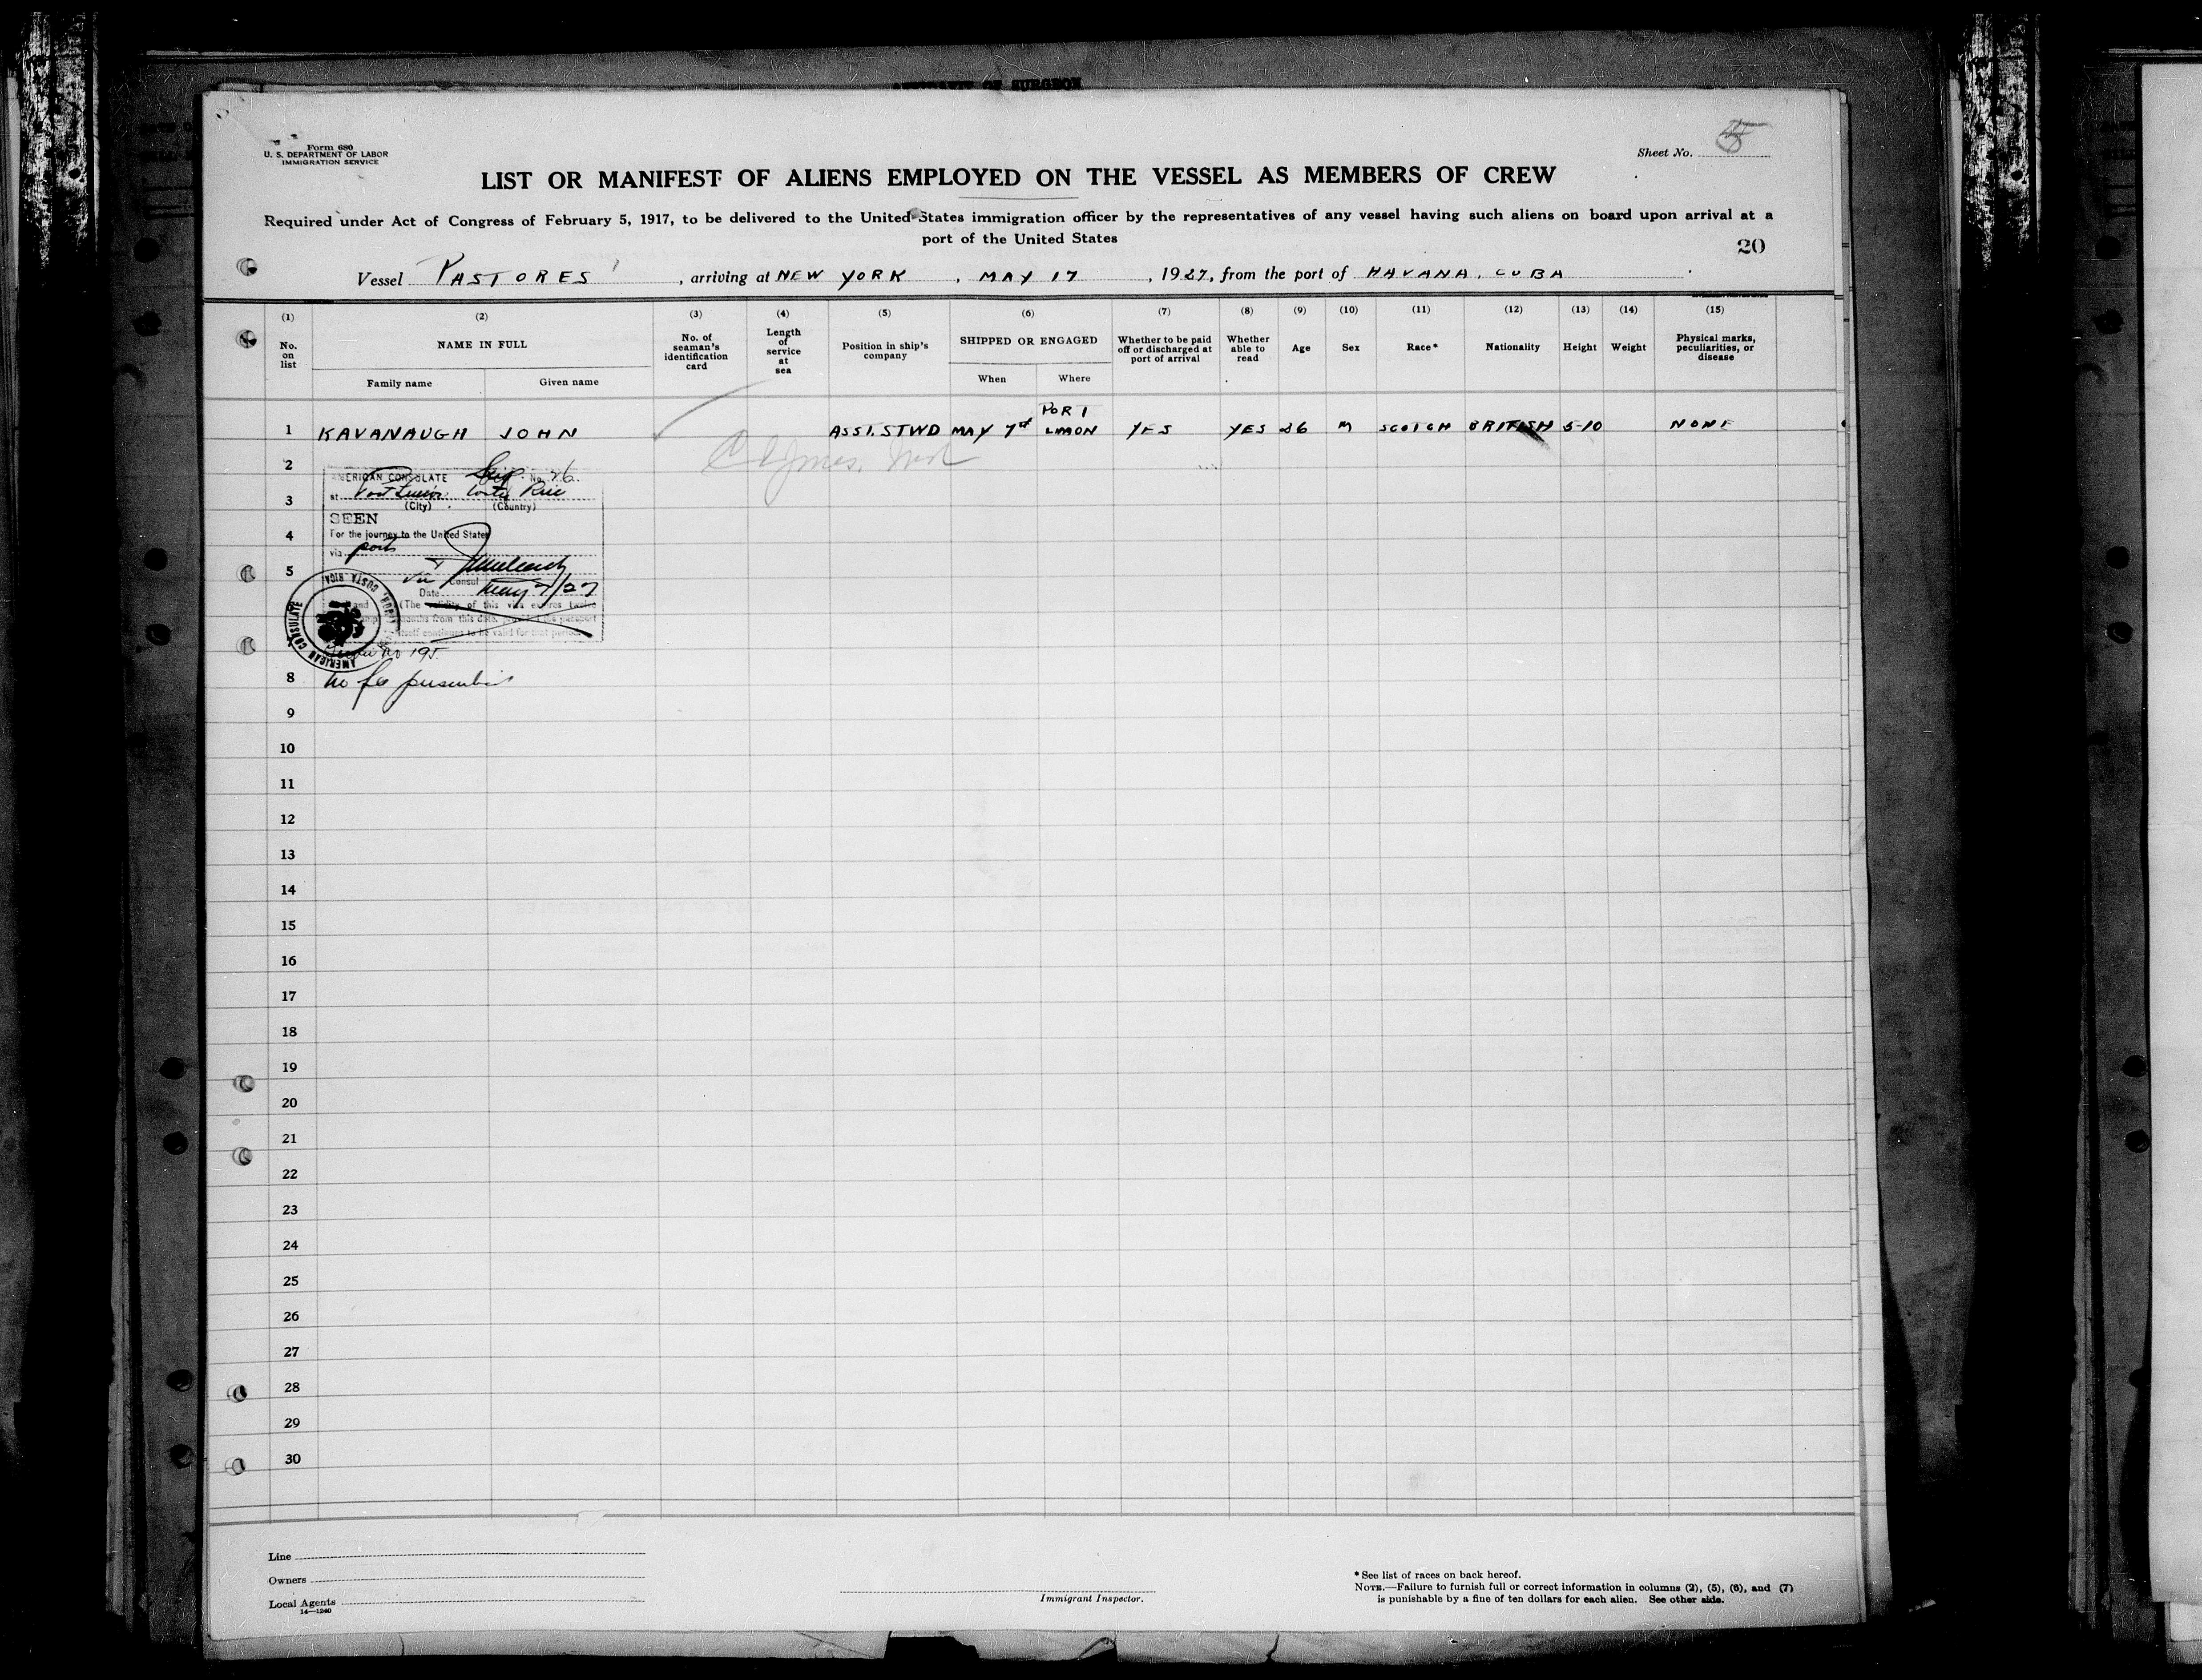 OF SURGEON
Form 680
U. S. DEPARTMENT OF LABOR
IMMIGRATION SERVICE
Sheet No. 5
LIST OR MANIFEST OF ALIENS EMPLOYED ON THE VESSEL AS MEMBERS OF CREW
Required under Act of Congress of February 5, 1917, to be delivered to the United States immigration officer by the representatives of any vessel having such aliens on board upon arrival at a
port of the United States
20
Vessel PASTORES, arriving at NEW YORK, MAY 17, 1927, from the port of HAVANA, CUBA
(1) (2) (3) (4) (5) (6) (7) (8) (9) (10) (11) (12) (13) (14) (15)
No. on list NAME IN FULL No. of seaman's identification card Length of service at sea Position in ship's company SHIPPED OR ENGAGED Whether to be paid off or discharged at port of arrival Whether able to read Age Sex Race* Nationality Height Weight Physical marks, peculiarities, or disease
Family name Given name When Where
PORT
1 KAVANAUGH JOHN ASST. STWD MAY 7th LIMON YES YES 26 M SCOTCH BRITISH 5-10 NONE
2
AMERICAN CONSULATE No. 26
at Port Limon Costa Rica
3
(City) (Country)
SEEN
4
For the journey to the United States
via ports
5
Consul
Date May 7/27
(The validity of this visa expires twelve
months from this date, provided the passport
itself continues to be valid for that period.)
AMERICAN CONSULATE COSTA RICA
no 195
8 No fee prescribed
9
10
11
12
13
14
15
16
17
18
19
20
21
22
23
24
25
26
27
28
29
30
Line
Owners
Local Agents
14—1240
Immigrant Inspector.
* See list of races on back hereof.
NOTE.—Failure to furnish full or correct information in columns (2), (5), (6), and (7)
is punishable by a fine of ten dollars for each alien. See other side.